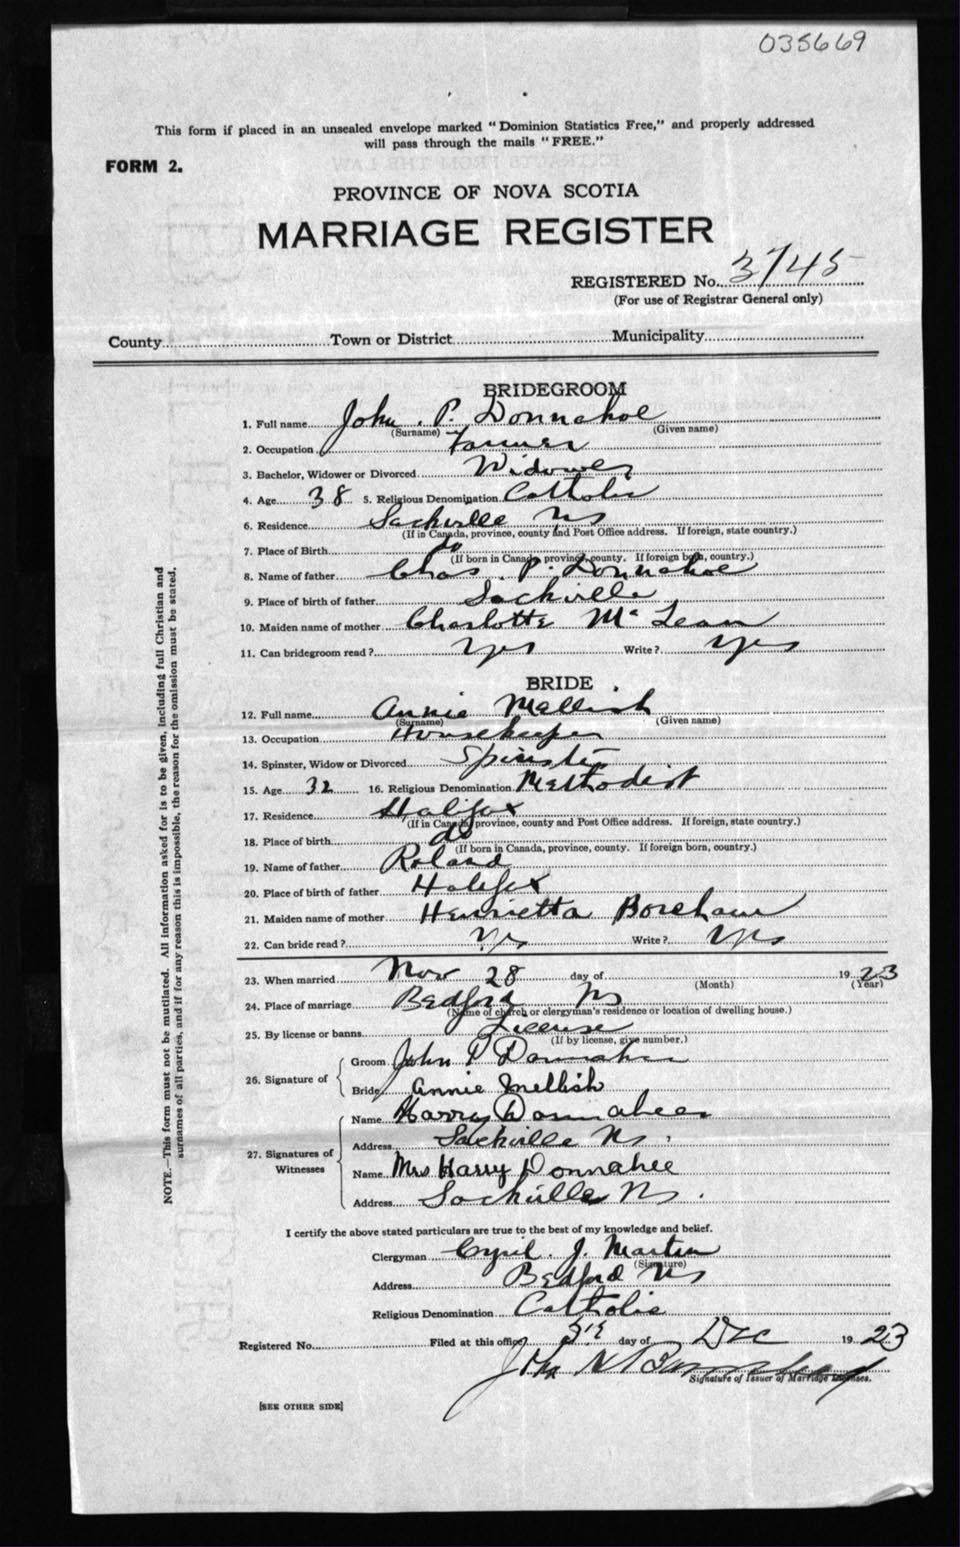 035669
This form if placed in an unsealed envelope marked "Dominion Statistics Free," and properly addressed
will pass through the mails "FREE."
FORM 2.
PROVINCE OF NOVA SCOTIA
MARRIAGE REGISTER
REGISTERED No. 3745
(For use of Registrar General only)
County Town or District Municipality
BRIDEGROOM
1. Full name John P. Donnahoe
(Surname) (Given name)
2. Occupation Farmer
3. Bachelor, Widower or Divorced Widower
4. Age 38 5. Religious Denomination Catholic
6. Residence Sackville NS
(If in Canada, province, county and Post Office address. If foreign, state country.)
7. Place of Birth do
(If born in Canada, province, county. If foreign born, country.)
8. Name of father Chas. P. Donnahoe
9. Place of birth of father Sackville
10. Maiden name of mother Charlotte McLean
11. Can bridegroom read? Yes Write? Yes
BRIDE
12. Full name Annie Mellish
(Surname) (Given name)
13. Occupation Housekeeper
14. Spinster, Widow or Divorced Spinster
15. Age 32 16. Religious Denomination Methodist
17. Residence Halifax
(If in Canada, province, county and Post Office address. If foreign, state country.)
18. Place of birth do
(If born in Canada, province, county. If foreign born, country.)
19. Name of father Roland
20. Place of birth of father Halifax
21. Maiden name of mother Henrietta Boreham
22. Can bride read? Yes Write? Yes
23. When married Nov 28 day of 1923
(Month) (Year)
24. Place of marriage Bedford NS
(Name of church or clergyman's residence or location of dwelling house.)
25. By license or banns License
(If by license, give number.)
26. Signature of
Groom John P Donnahoe
Bride Annie Mellish
27. Signatures of Witnesses
Name Harry Donnahee
Address Sackville NS.
Name Mrs Harry Donnahee
Address Sackville NS.
I certify the above stated particulars are true to the best of my knowledge and belief.
Clergyman Cyril. J. Martin
(Signature)
Address Bedford NS
Religious Denomination Catholic
Registered No. Filed at this office day of Dec 1923
John
Signature of Issuer of Marriage Licenses.
[SEE OTHER SIDE]
NOTE.—This form must not be mutilated. All information asked for is to be given, including full Christian and
surnames of all parties, and if for any reason this is impossible, the reason for the omission must be stated.